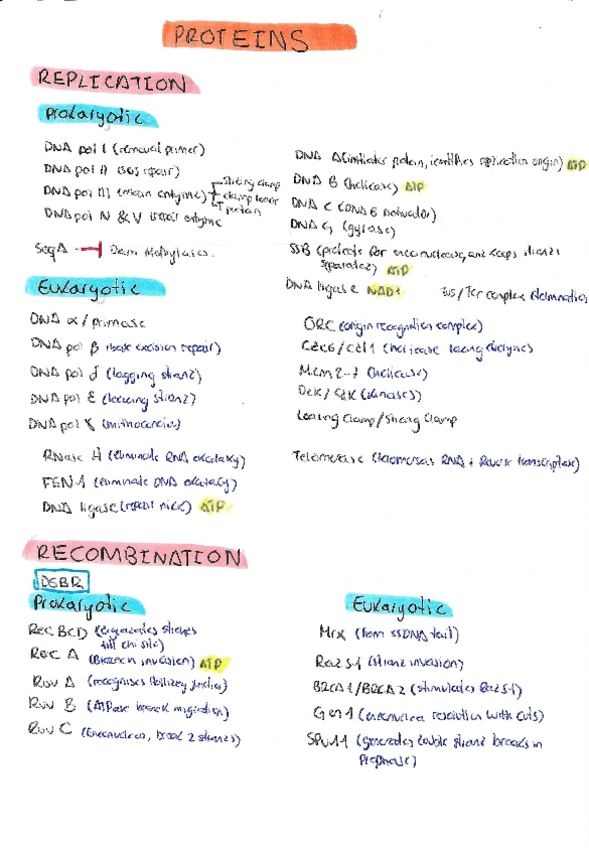 PROTEINS
REPLICATION
Prokaryotic
DNA pol I (removal primer)
DNA pol II (SOS repair)
DNA pol III (main enzyme) sliding clamp
clamp loader
protein
DNA pol IV & V (repair enzyme
SeqA Dam Methylates.
DNA A (initiator protein, identifies replication origin) ATP
DNA B (helicase) ATP
DNA C (DNA B activator)
DNA G (gyrase)
SSB (protects for endonuclease, and keeps strands
separated) ATP
DNA ligase NAD+ Tus/Ter complex
Eukaryotic
DNA α / primase
DNA pol β (base excision repair)
DNA pol δ (lagging strand)
DNA pol ε (leading strand)
DNA pol γ (mitocondria)
RNase H (eliminate RNA okazaky)
FEN1 (eliminate DNA okazaky)
DNA ligase (repair nick) ATP
ORC (origin recognition complex)
Cdc6 / Cdt1 (helicase loading enzymes
Mcm 2-7 (helicase)
DDK / CDK (kinases)
Loading Clamp / Sliding Clamp
Telomerase (telomerasa RNA + Reverse transcriptase)
RECOMBINATION
DSBR
Prokaryotic
Rec BCD ( strands
till chi site)
Rec A (Strand invasion) ATP
Ruv A (recognises Holliday junction)
Ruv B (ATPase branch migration)
Ruv C (Endonuclea, break 2 strands)
Eukaryotic
Mrx (form ssDNA tail)
Rad51 (strand invasion)
BRCA1/BRCA2 (stimulates Rad51)
Gen1 (endonuclea resolution with cuts)
SPO11 (generates double strand breaks in
Prophase)